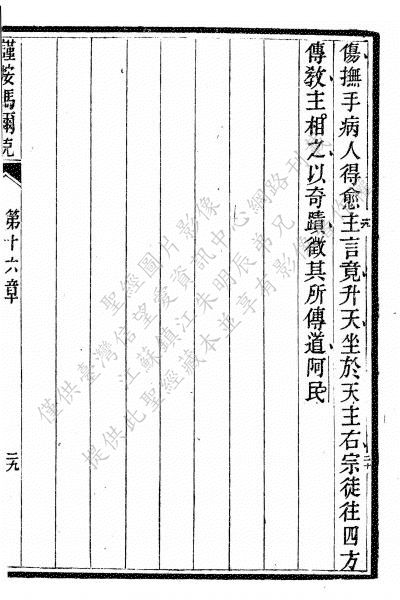 傷撫手病人得愈主言竟升天坐於天主右宗徒往四方
十九
二十
傳教主相之以奇蹟徵其所傳道阿民
謹按馬爾克
第十六章
二九
聖經圖片影像
僅供臺灣信望愛資訊中心網路刊
江蘇鎮江朱明辰弟兄
提供此聖經藏本並享有影像